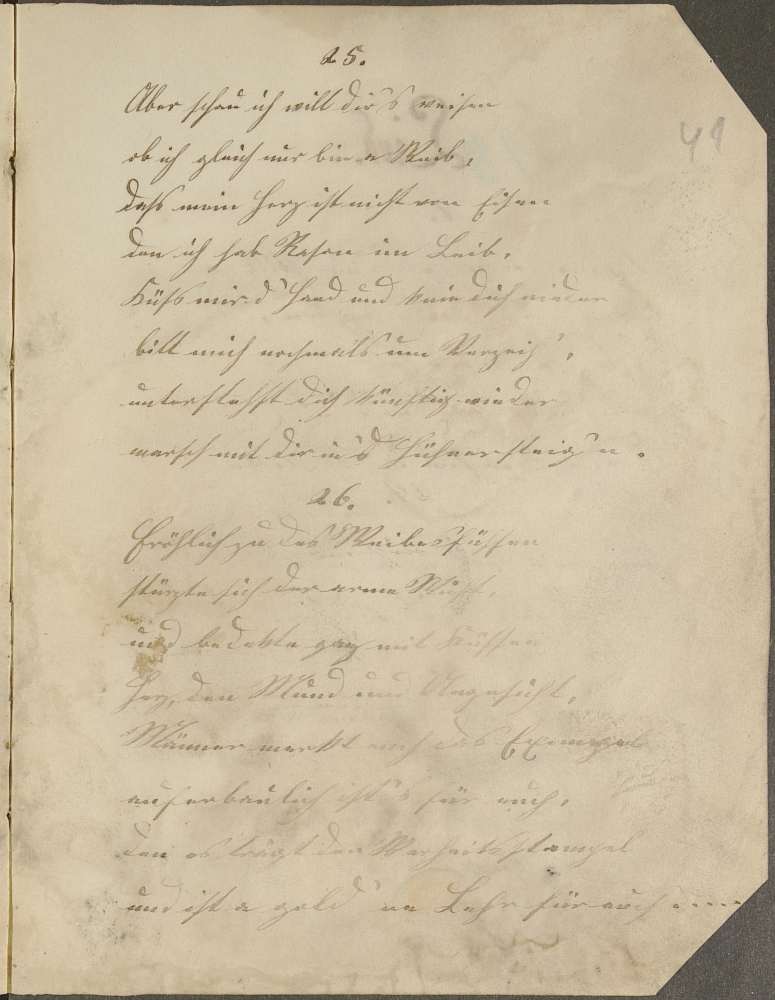 25.
49
Aber schau ich will dir's weisen
ob ich gleich nur bin a Weib,
dass mein Herz ist nicht von Eisen
den ich hab Rason im Leib,
Küss mir d' Hand und knie dich nieder
bitt mich nochmals um Verzeih',
unterstehst dich künftig wieder
marsch mit dir in's Hühnersteig'n.
26.
Fröhlich zu des Weibes Füssen
stürzte sich der arme
und bedekte ganz mit Küssen
Herz, den Mund und Angesicht,
Männer merkt euch das Exempel
auferbaulich ist's für euch,
den es trägt den Warheitsstempel
und ist a gold'ne Lehr für euch .....